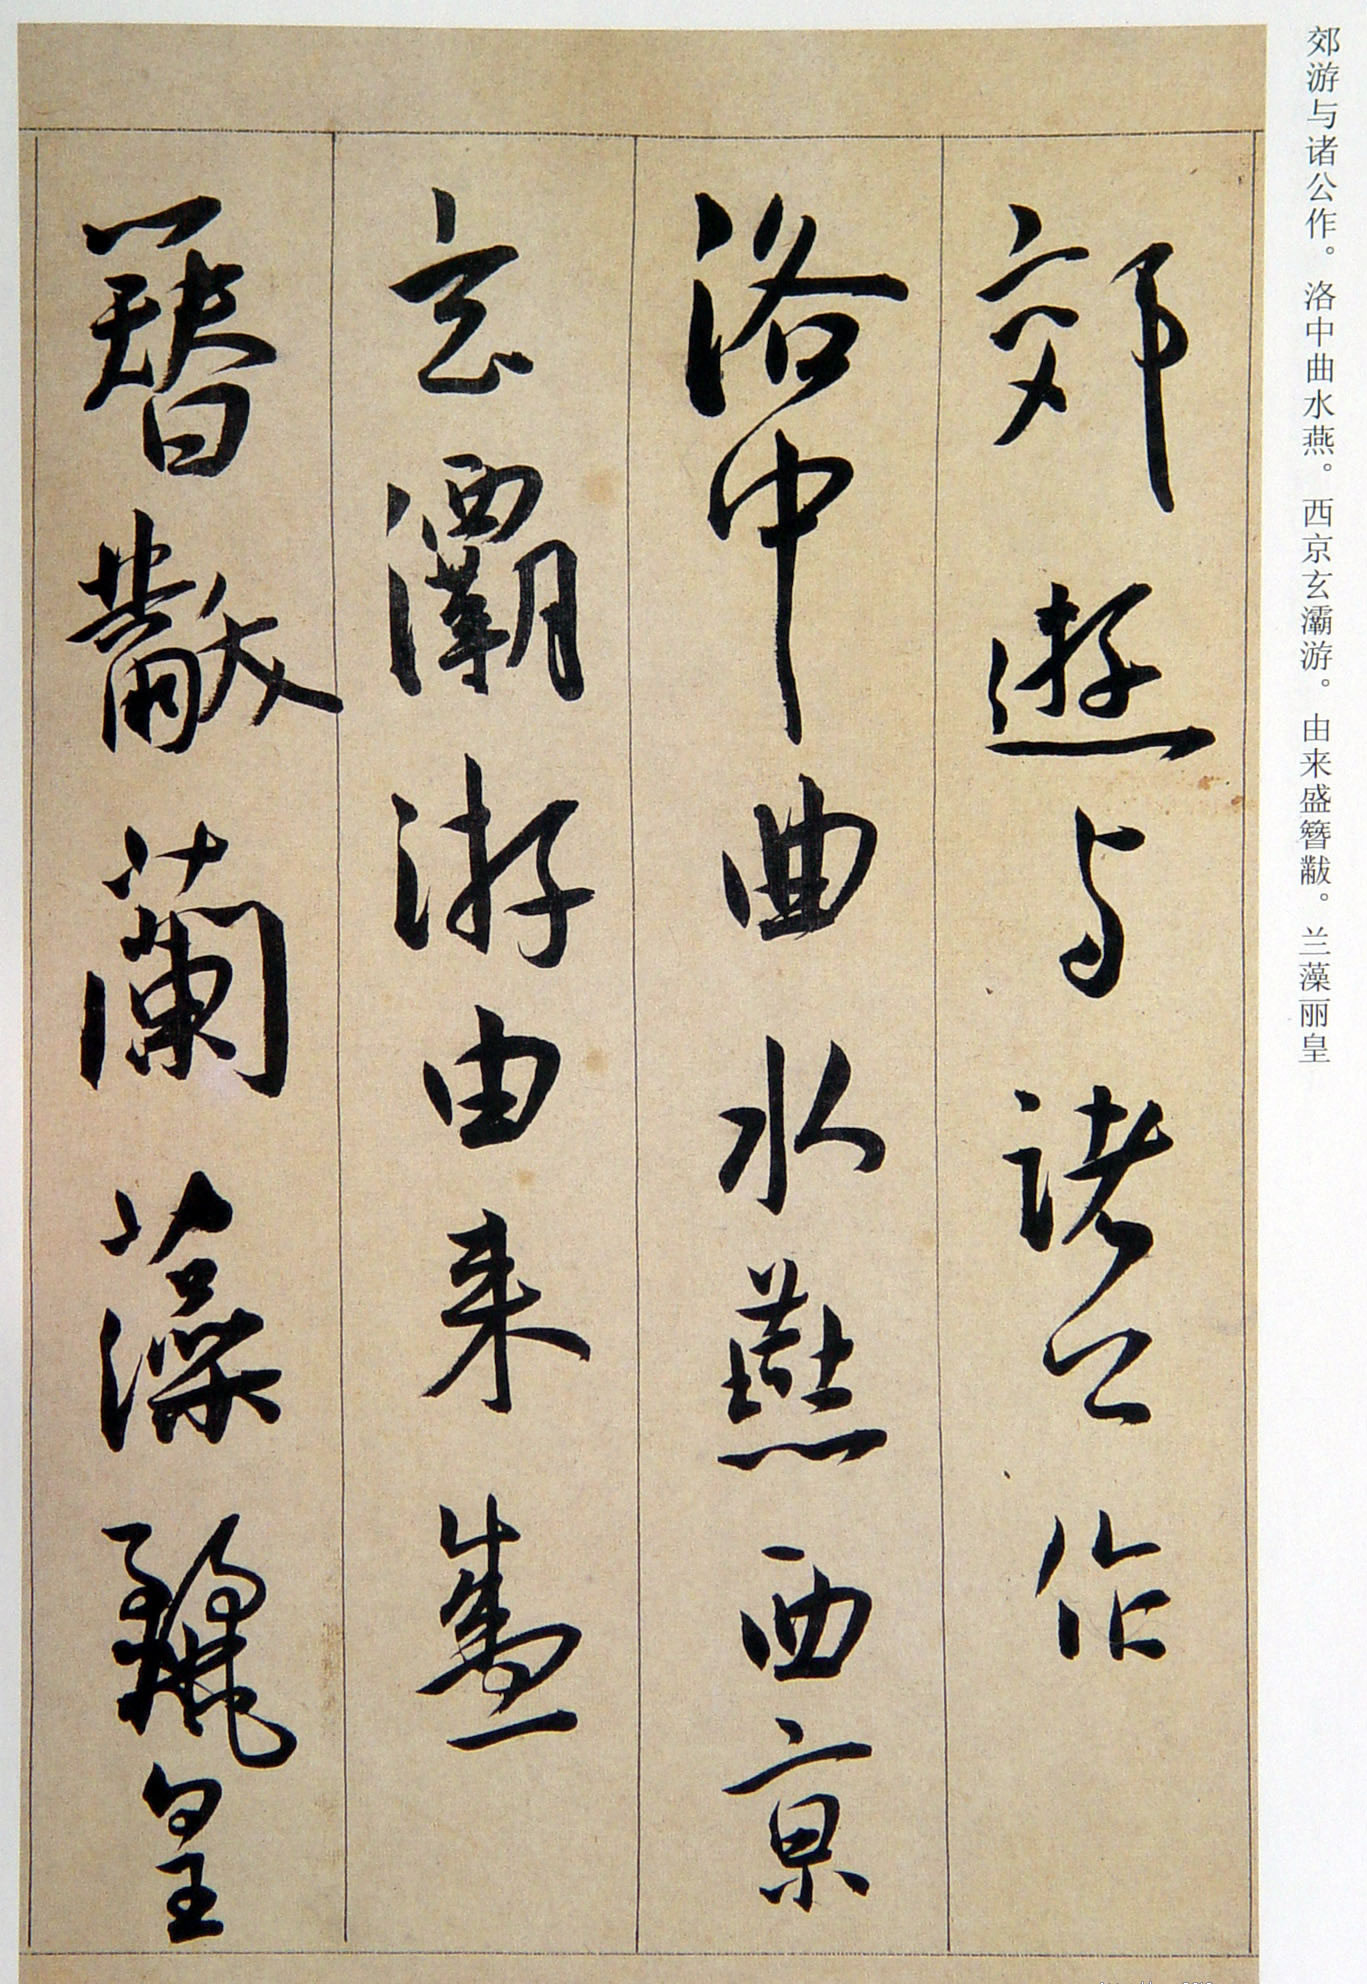 郊游与诸公作。洛中曲水燕。西京玄灞游。由来盛簪黻。兰藻丽皇
郊遊与諸公作
洛中曲水燕西京
玄灞游由来盛
簪黻蘭藻麗皇